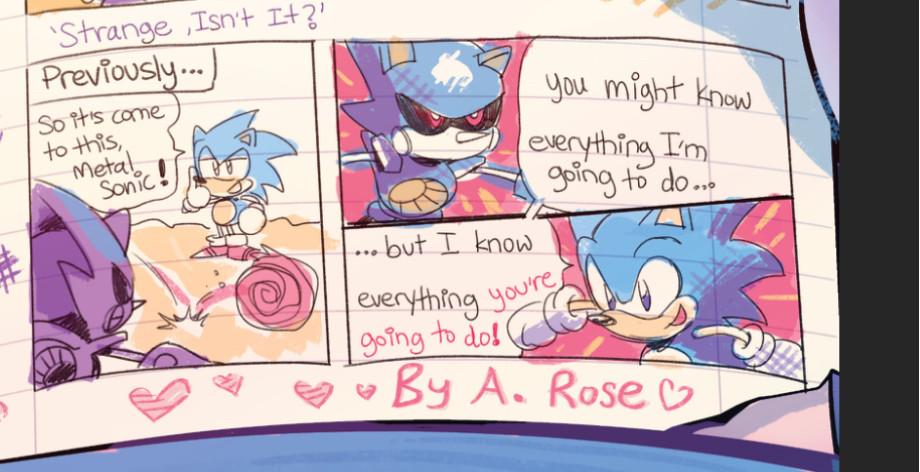 'Strange ,Isn't It?'
Previously...
So it's come
to this,
Metal
Sonic!
you might know
everything I'm
going to do...
...but I know
everything you're
going to do!
By A. Rose